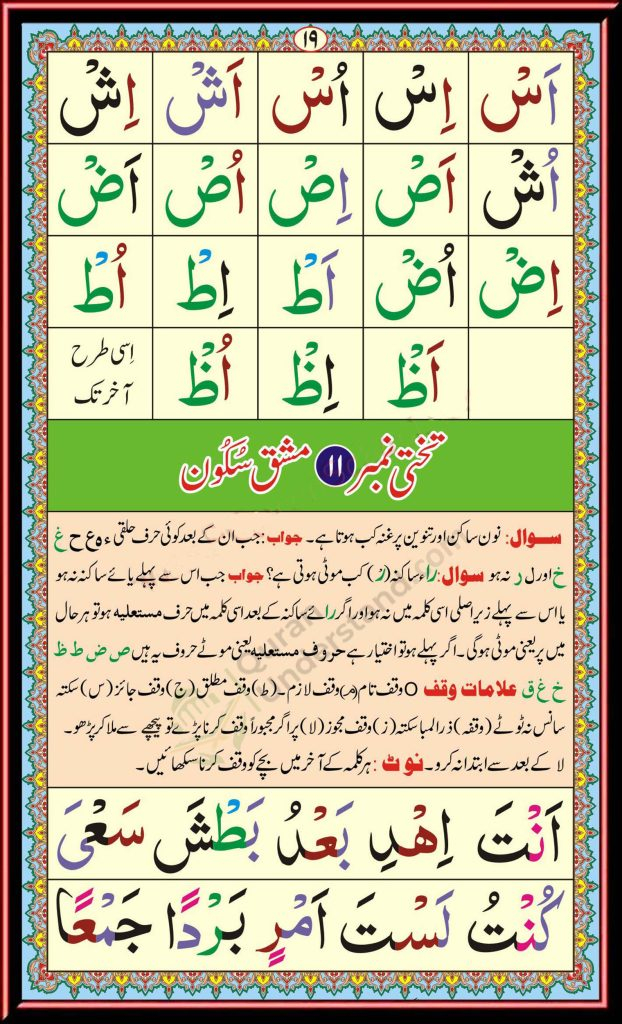 ۱۹
اَسْ اِسْ اُسْ اَشْ اِشْ
اُشْ اَصْ اِصْ اُصْ اَضْ
اِضْ اُضْ اَطْ اِطْ اُطْ
اَظْ اِظْ اُظْ اِسی طرح
آخر تک
تختی نمبر ۱۱ مشق سُکُون
سوال: نون ساکن اور تنوین پر غنہ کب ہوتا ہے۔ جواب: جب ان کے بعد کوئی حرف حلقی ء ہ ع ح غ
خ اور ل ر نہ ہو سوال: راء ساکنہ (رْ) کب موٹی ہوتی ہے؟ جواب جب اس سے پہلے یائے ساکنہ نہ ہو
یا اس سے پہلے زیر اصلی اسی کلمہ میں نہ ہو اور اگر رائے ساکنہ کے بعد اسی کلمہ میں حرف مستعلیہ ہو تو ہر حال
میں پر یعنی موٹی ہوگی۔ اگر پہلے ہو تو اختیار ہے حروف مستعلیہ یعنی موٹے حروف یہ ہیں ص ض ط ظ
خ غ ق علامات وقف O وقف تام (مـ) وقف لازم۔ (ط) وقف مطلق (ج) وقف جائز (س) سکتہ
سانس نہ ٹوٹے (وقفہ) ذرا لمبا سکتہ (ز) وقف مجوز (لا) پر اگر مجبوراً وقف کرنا پڑے تو پیچھے سے ملا کر پڑھو۔
لا کے بعد سے ابتدا نہ کرو۔ نوٹ: ہر کلمہ کے آخر میں بچے کو وقف کرنا سکھائیں۔
اَنْتَ اِهْدِ بَعْدُ بَطْشَ سَعْیَ
کُنْتُ لَسْتَ اَمْرٍ بَرْدًا جَمْعًا